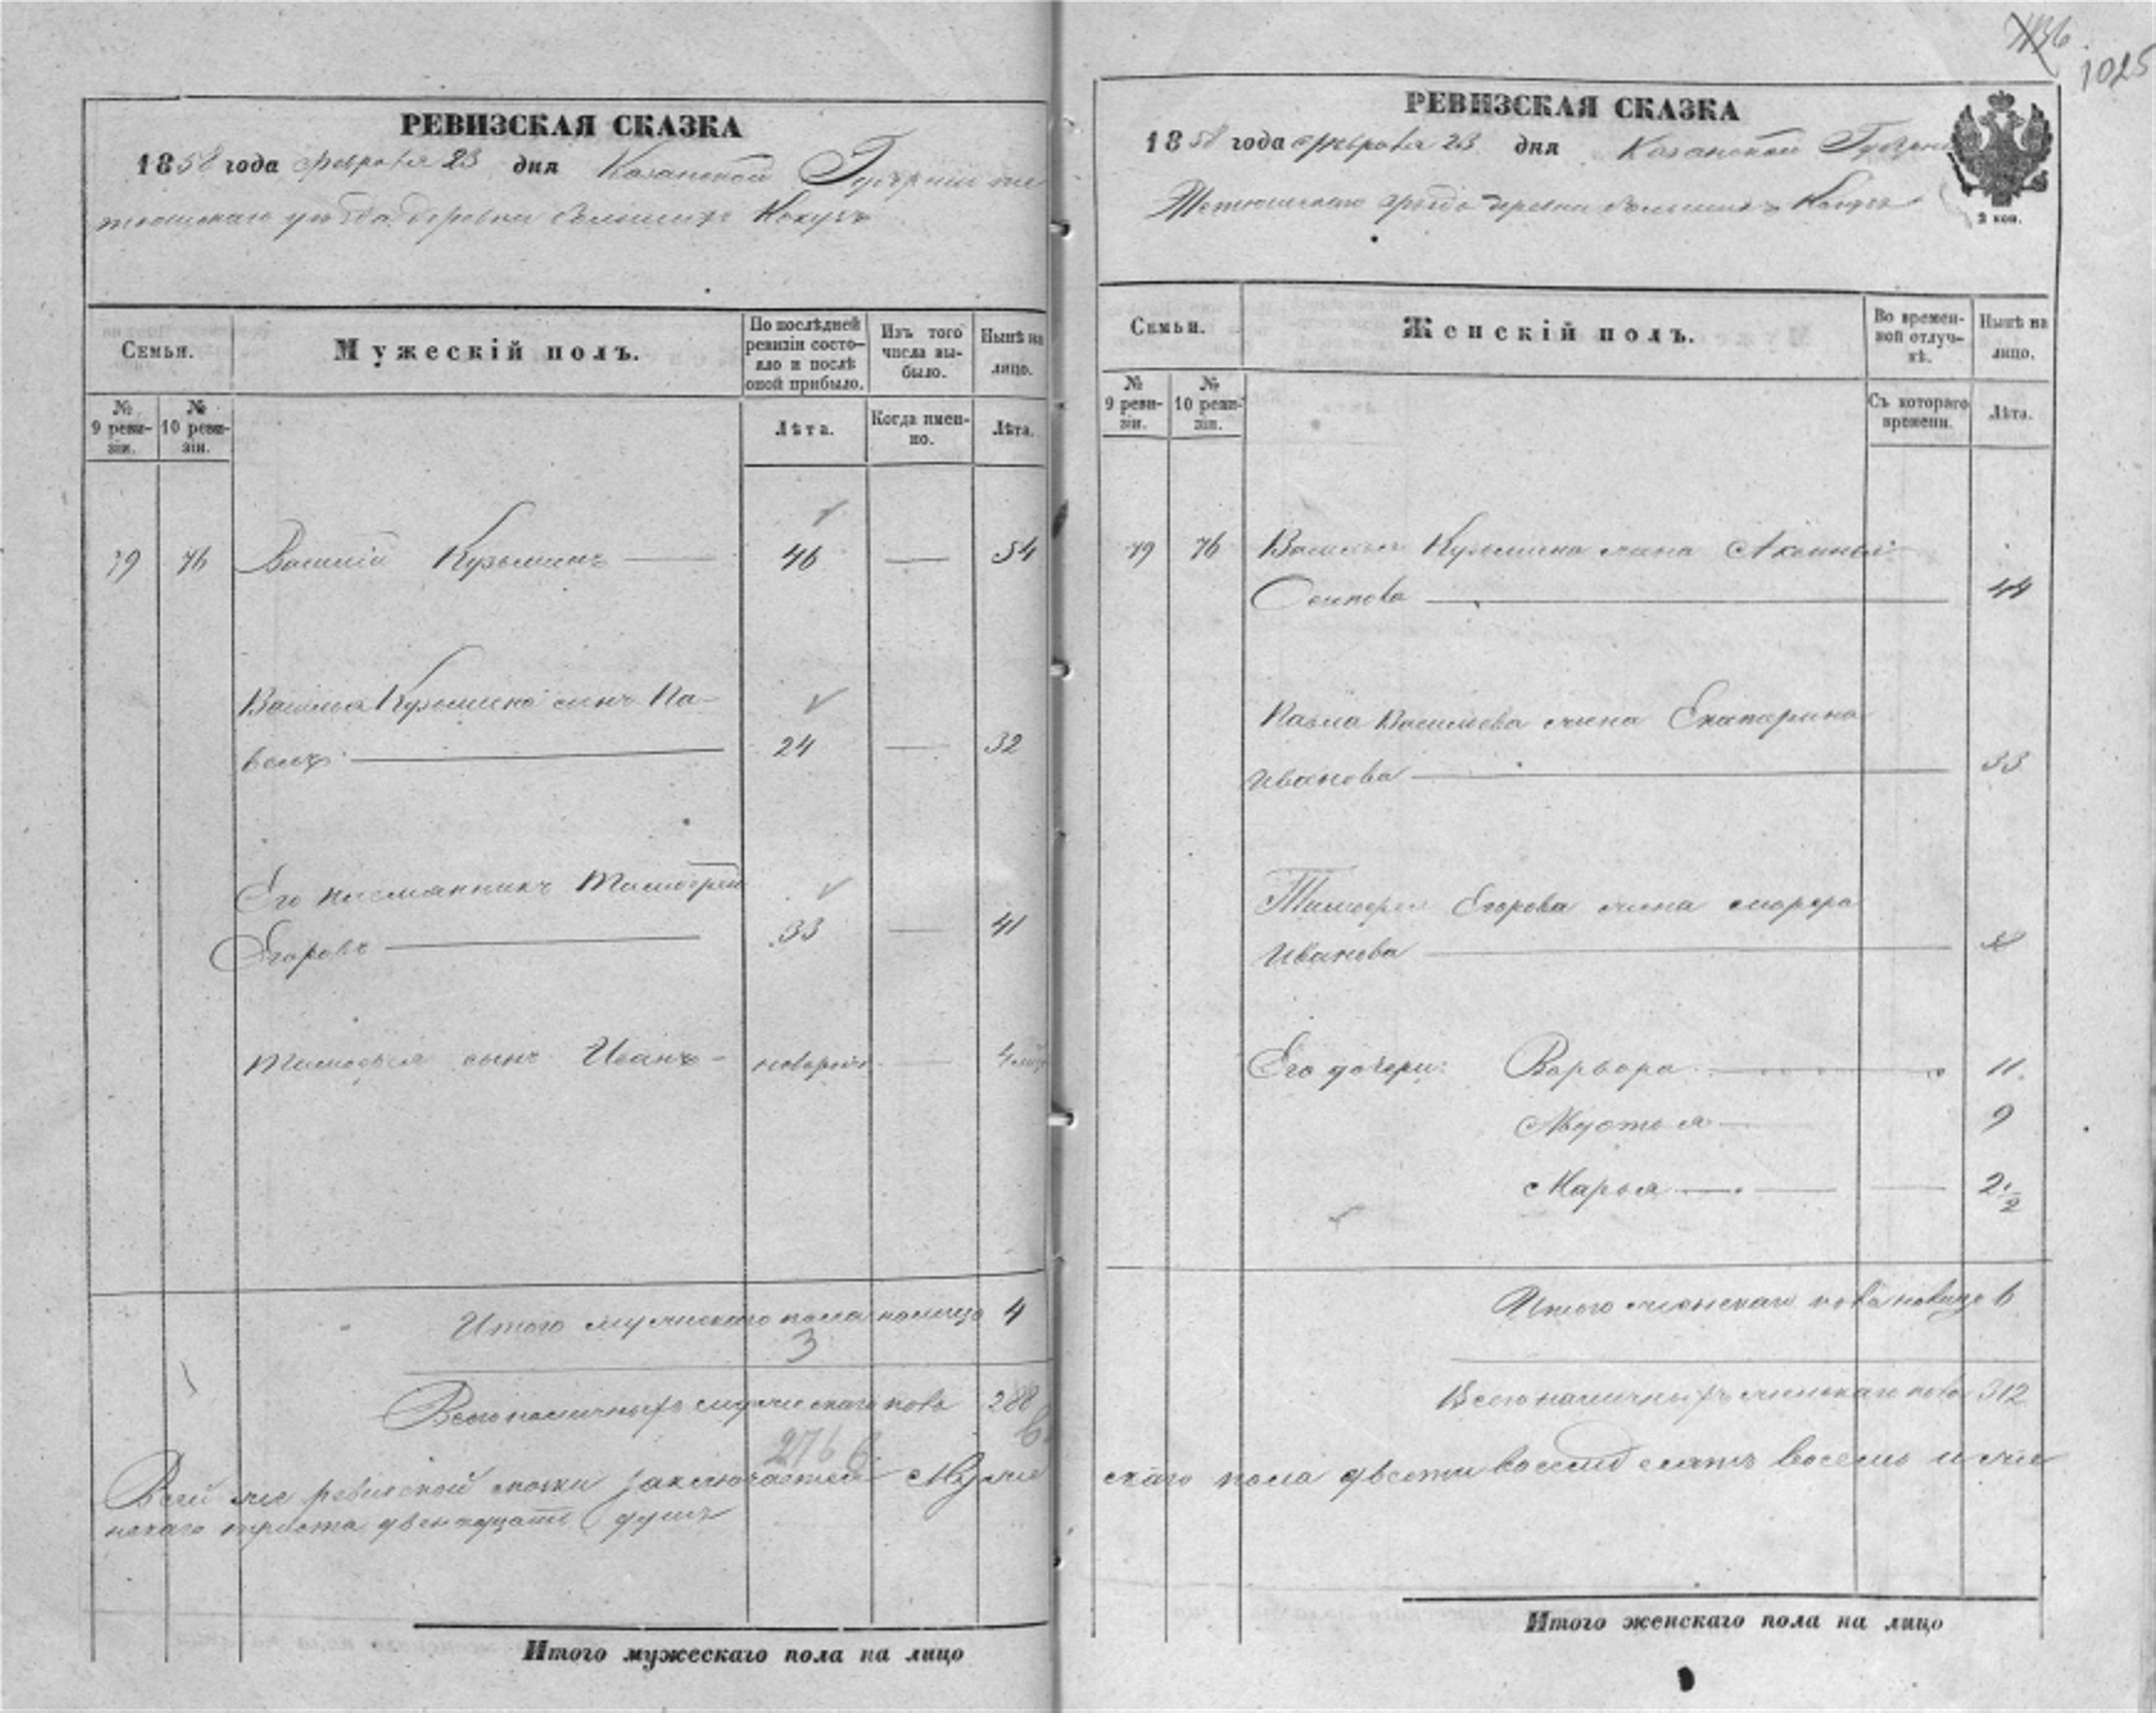 1025
РЕВИЗСКАЯ СКАЗКА
1858 года февраля 23 дня Казанской Губернии те
тюшскаго уѣзда деревни большихъ Кокузъ
Семьи.
Мужескій полъ.
По послѣдней ревизіи состояло и послѣ оной прибыло.
Изъ того числа выбыло.
Нынѣ на лицо.
№ 9 ревизіи.
№ 10 ревизіи.
Лѣта.
Когда именно.
Лѣта.
79 76 Василій Кузьминъ — 46 — 54
Василья Кузьмина сынъ Па-
велъ — 24 — 32
Его племянникъ Тимофей
Егоровъ — 33 — 41
Тимофея сынъ Иванъ - новорож — 4
Итого мужескаго пола налицо 4
3
Всего наличныхъ мужескаго пола 288
276
Всей же ревизской сказки заключается Муже
нскаго триста двенадцать душъ
Итого мужескаго пола на лицо
РЕВИЗСКАЯ СКАЗКА
1858 года февраля 23 дня Казанской Губерни
Тетюшскаго уѣзда деревни большихъ Кокузъ
2 коп.
Семьи.
Женскій полъ.
Во временной отлучкѣ.
Нынѣ на лицо.
№ 9 ревизіи.
№ 10 ревизіи.
Съ котораго времени.
Лѣта.
79 76 Василья Кузьмина жена Аксинья
Осипова — 44
Павла Васильева жена Екатерина
Иванова — 33
Тимофея Егорова жена
Иванова —
Его дочери: Варвора — 11.
9
Марья — 2 1/2
Итого женскаго пола налицо 6
Всего наличныхъ женскаго пола 312
скаго пола двести восемдесятъ восемь и же
Итого женскаго пола на лицо